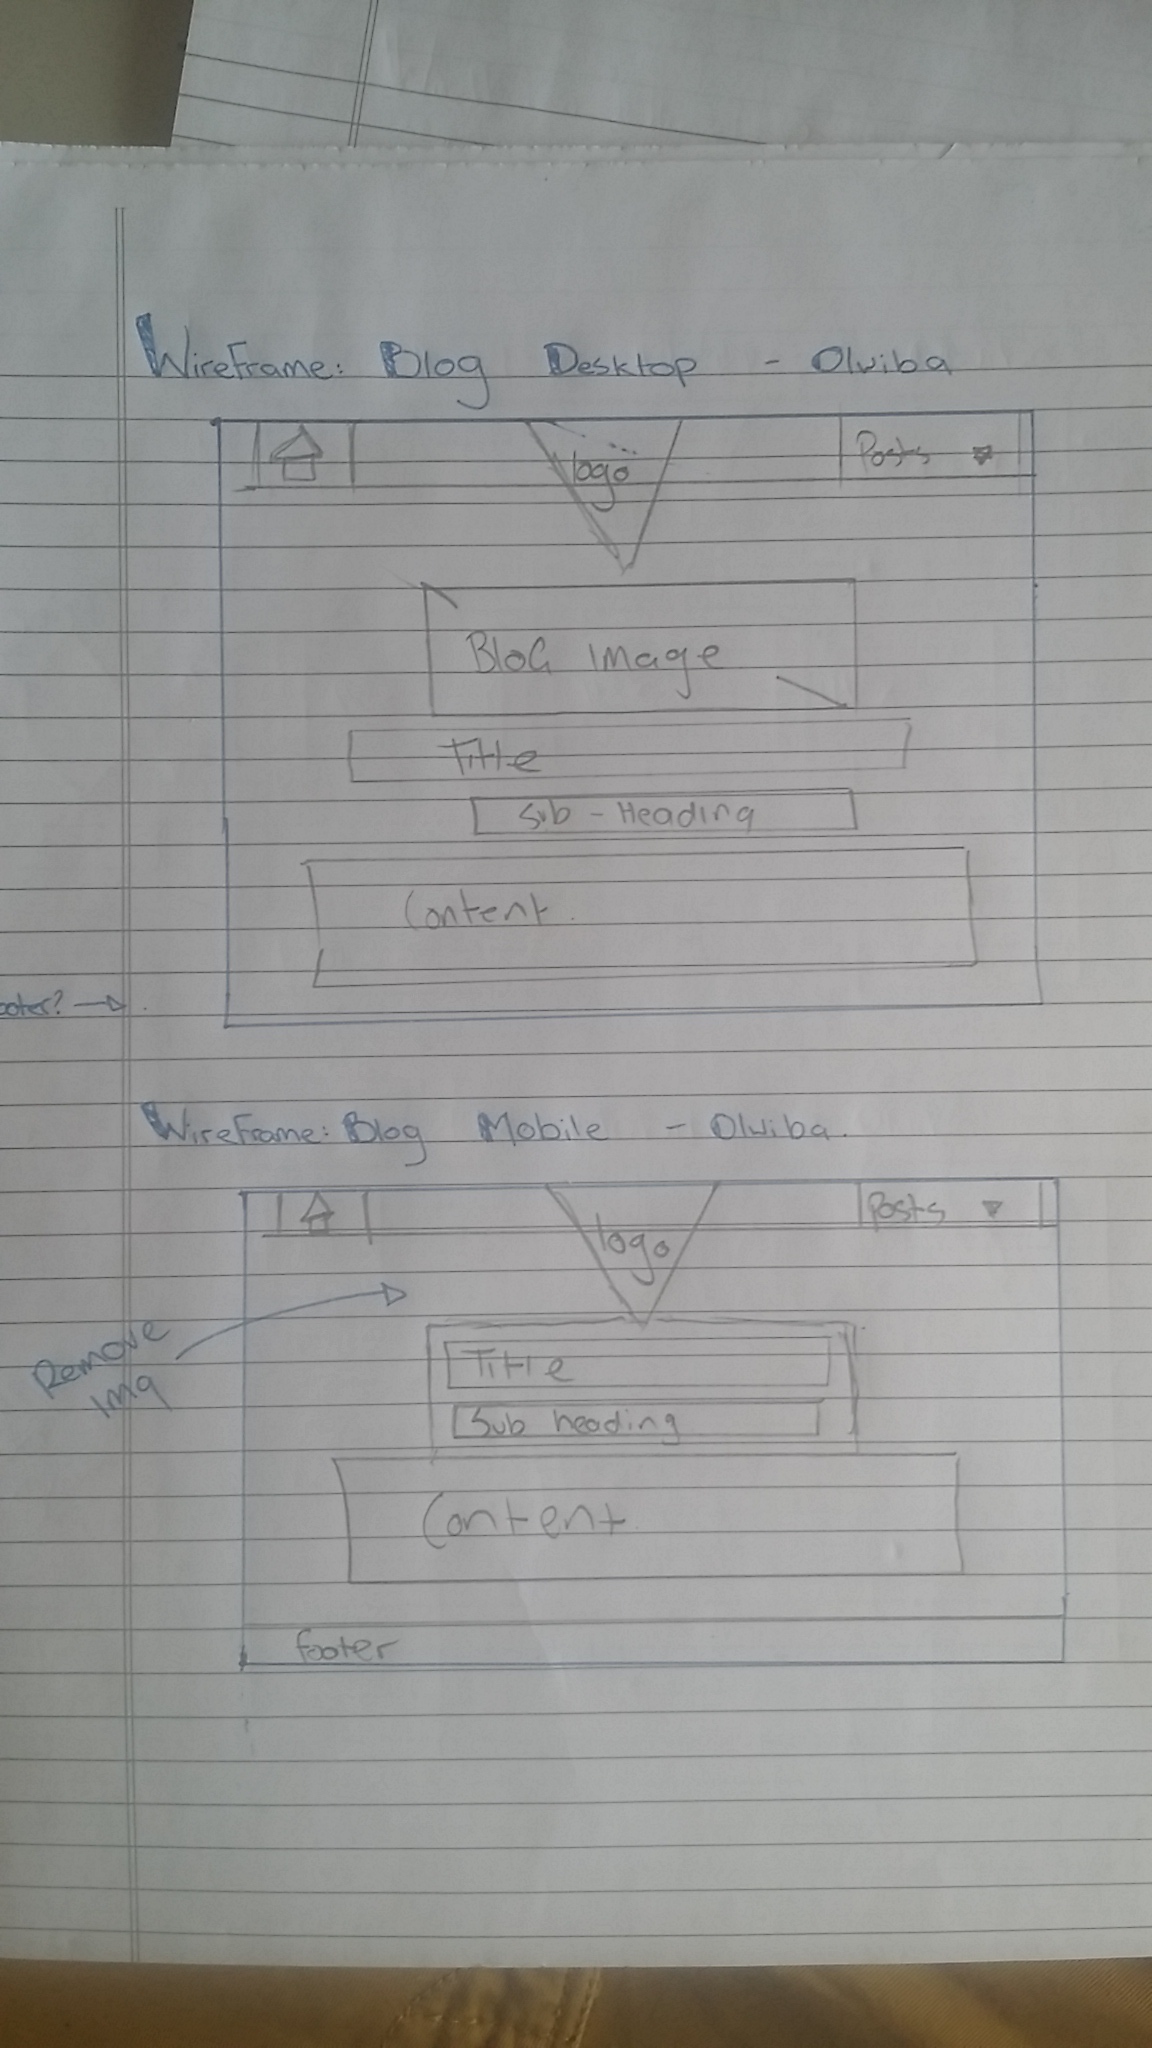 WireFrame: Blog Desktop - Olwiba
logo
Posts
Blog Image
Title
Sub-Heading
Content.
ooter?
WireFrame: Blog Mobile - Olwiba.
Posts
logo
Remove
Img
Title
Sub heading
Content
footer